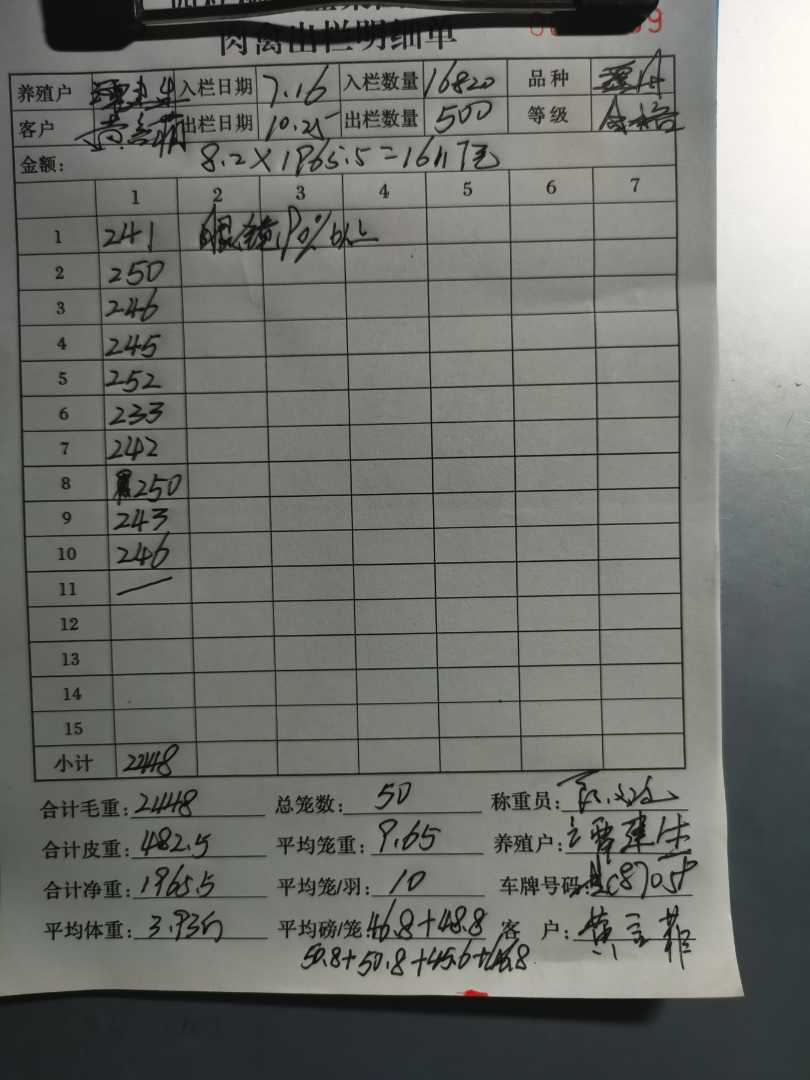 肉禽出栏明细单
养殖户 入栏日期 7.16 入栏数量 16820 品种
客户 出栏日期 10.25 出栏数量 500 等级 合格
金额: 8.2×1965.5=16117元
1 2 3 4 5 6 7
1 241 眼镜90%以上
2 250
3 246
4 245
5 252
6 233
7 242
8 250
9 243
10 246
11 —
12
13
14
15
小计 2448
合计毛重: 2448 总笼数: 50 称重员:
合计皮重: 482.5 平均笼重: 9.65 养殖户: 谭建生
合计净重: 1965.5 平均笼/羽: 10 车牌号码
平均体重: 3.93斤 平均磅/笼: 46.8+48.8 客 户:
50.8+50.8+45.6+46.8